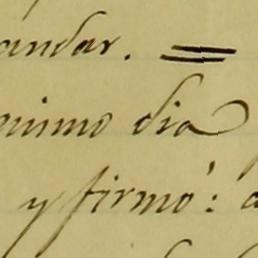 andar. =
mismo dia
y firmó: a